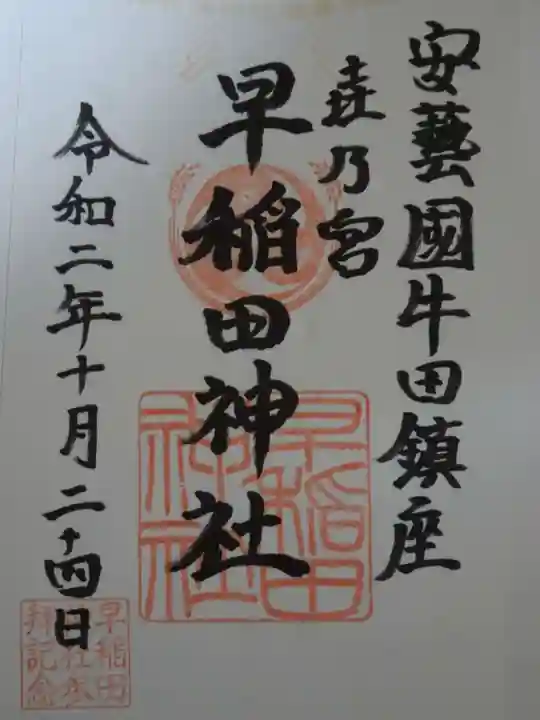 安藝國牛田鎮座
㐂乃宮
早稲田神社
令和二年十月二十四日
早稲田神社
早稲田
社参
拝記念